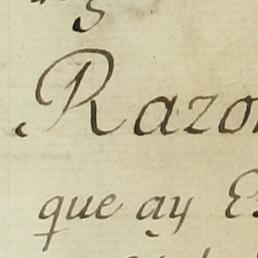 Razo
que ay E